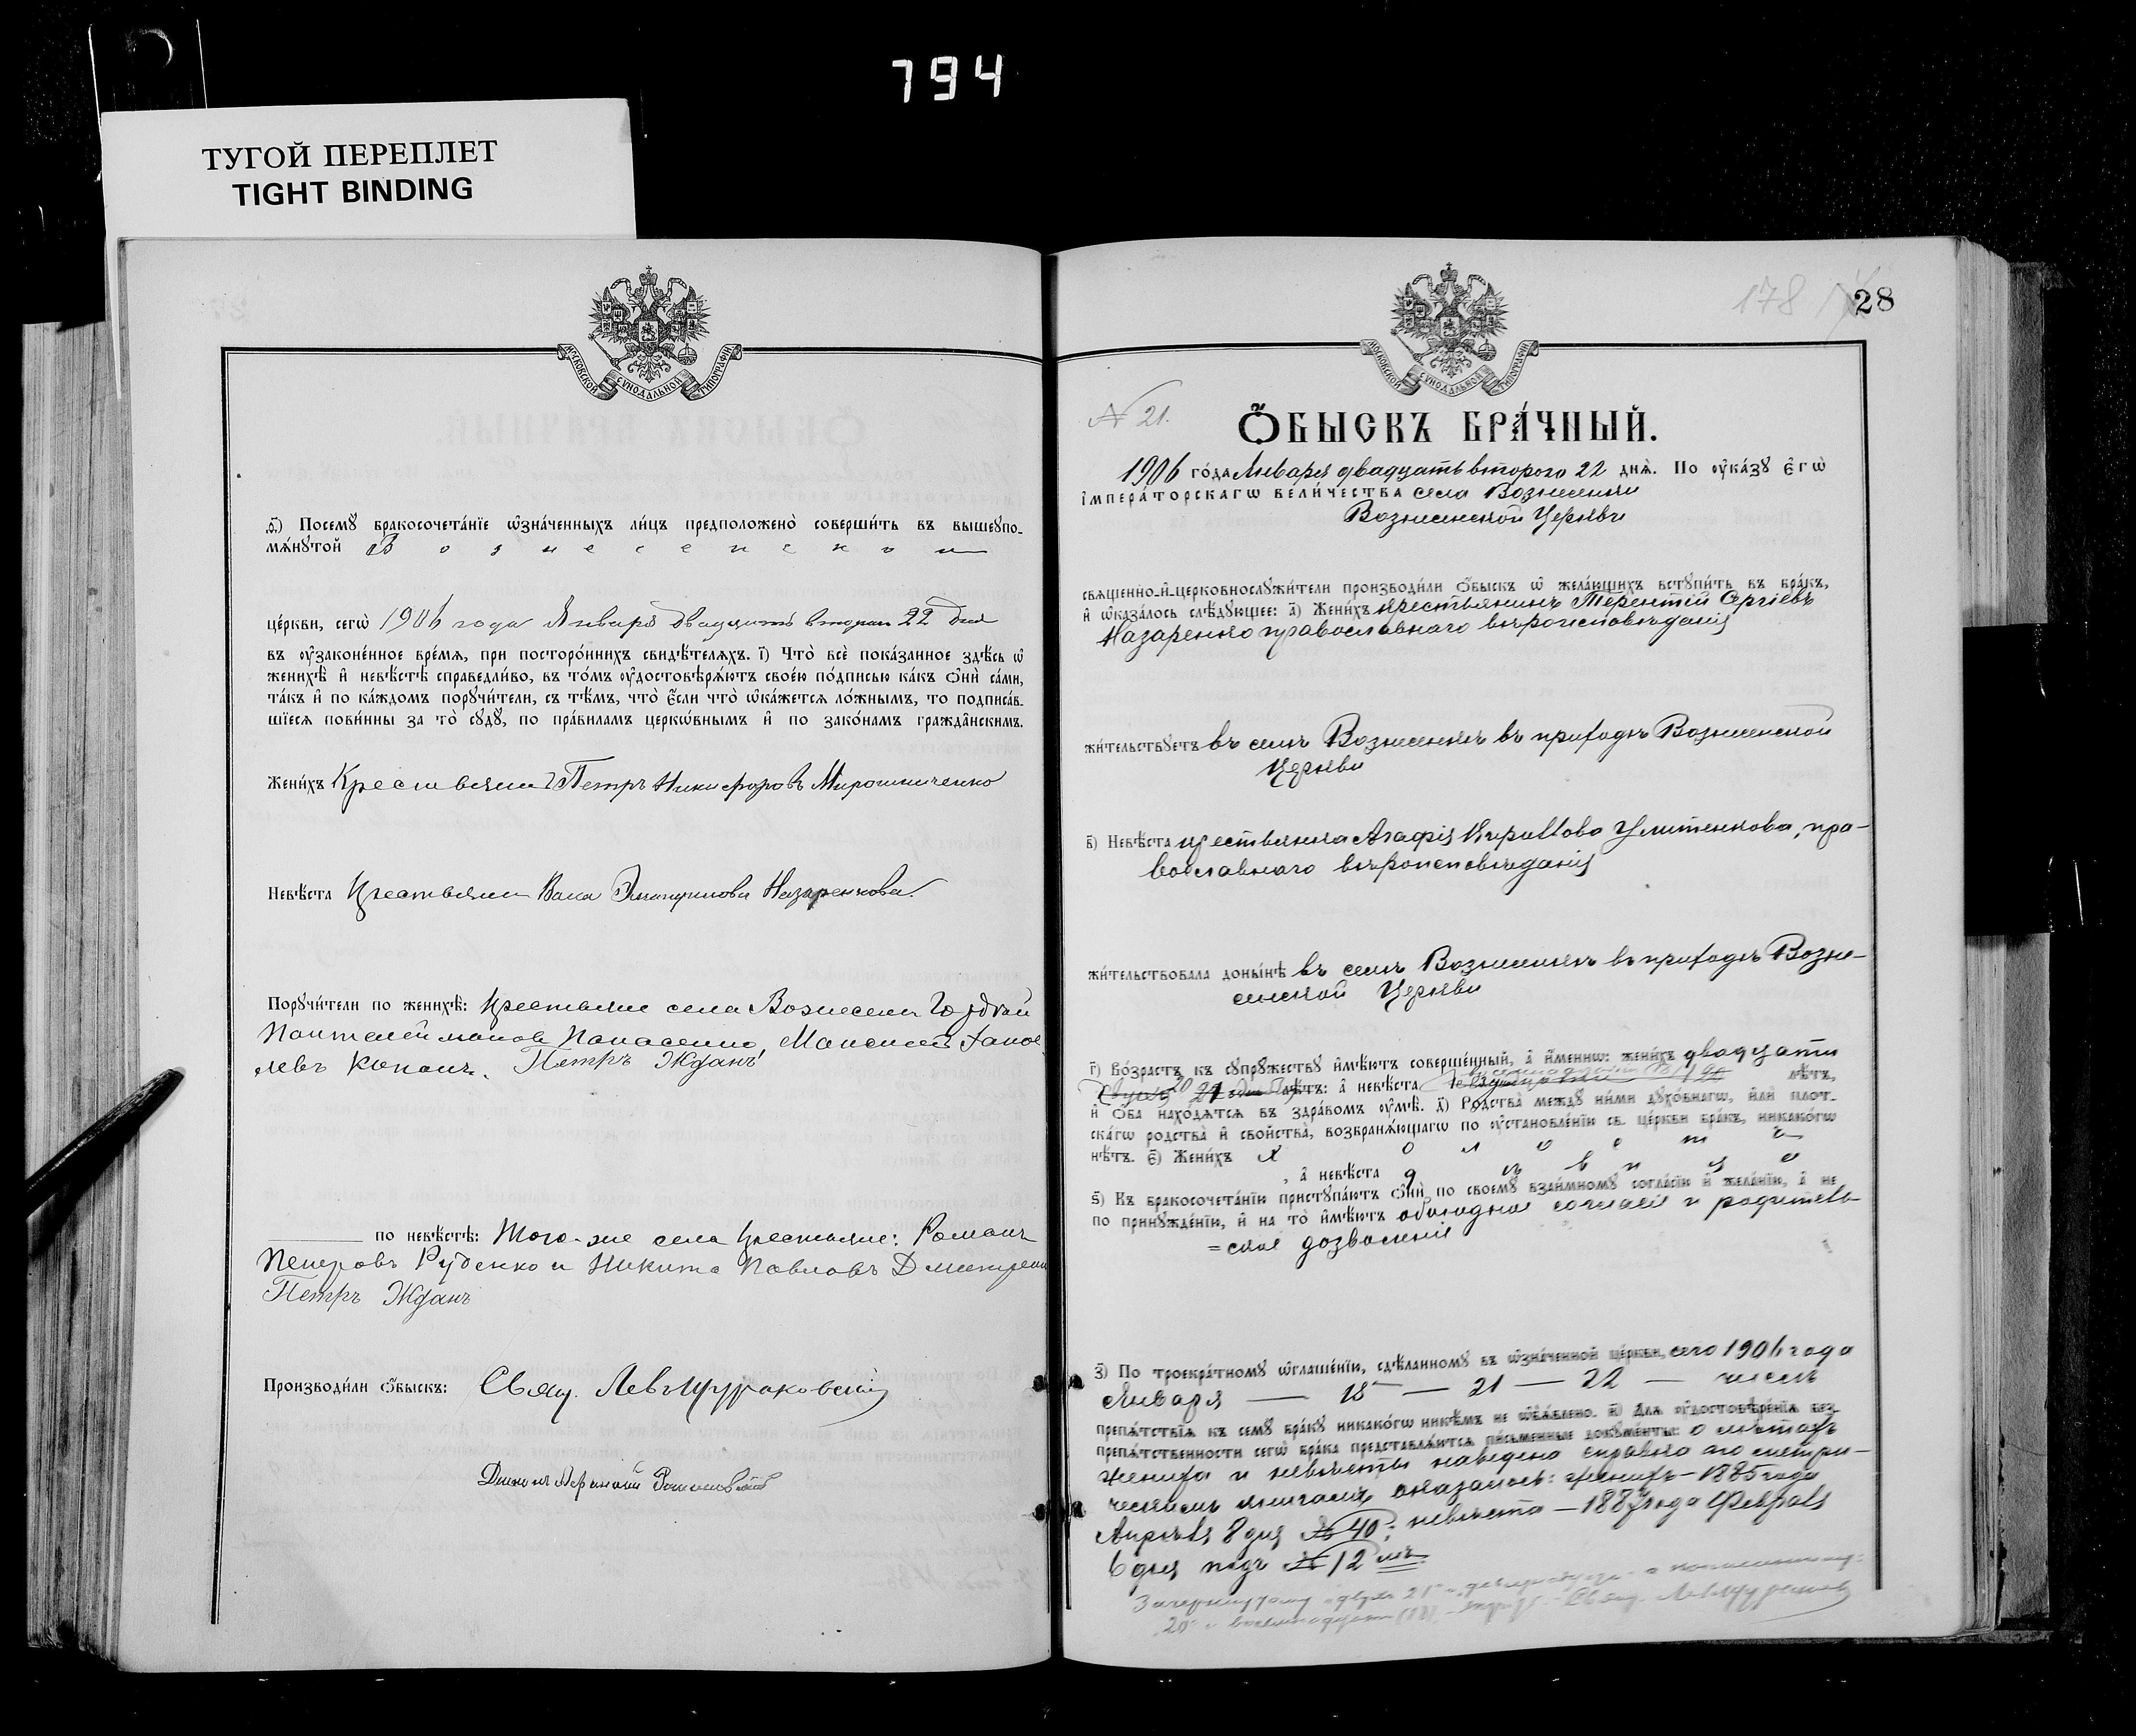 794
ТУГОЙ ПЕРЕПЛЕТ
TIGHT BINDING
МОСКОВСКОЙ СУНОДАЛЬНОЙ ТИПОГРАФІИ
ѳ҃) Посемꙋ бракосочета́нїе ѡ҆зна́ченныхъ ли́цъ предположено̀ соверши́ть въ вышеꙋпо-
мѧ́нꙋтой Вознесенской
це́ркви, сегѡ̀ 1906 года Января двадцать втораго 22 дня
въ ᲂу҆законе́нное вре́мѧ, при посторо́ннихъ свидѣ́телѧхъ. і҃) Что̀ всѐ пока́занное здѣ́сь ѡ҆
женихѣ̀ и҆ невѣ́стѣ справедли́во, въ то́мъ ᲂу҆достовѣрѧ́ютъ свое́ю по́дписью ка́къ ѻ҆нѝ са́ми,
та́къ и҆ по ка́ждомъ порꙋчи́тели, съ тѣ́мъ, что̀ є҆́сли что̀ ѡ҆ка́жетсѧ ло́жнымъ, то подписа́в-
шїесѧ пови́нны за то̀ сꙋдꙋ̀, по пра́виламъ церкѡ́внымъ и҆ по зако́намъ гражда̂нскимъ.
Жени́хъ Крестьянин Петръ Никифоровъ Мирошниченко
Невѣ́ста Крестьянка Назаренкова.
Порꙋчи́тели по женихѣ̀: крестьяне села Вознесенки
Пантелеймоновъ Панасенко,
Петръ Жданъ
по невѣ́стѣ: Того-же села крестьяне: Романъ
Петровъ Руденко и Никита Павловъ
Петръ Жданъ
Производи́ли ѻ҆́быскъ: Свящ. Левъ Щураковскій
178
28
МОСКОВСКОЙ СУНОДАЛЬНОЙ ТИПОГРАФІИ
N 21.
Ѻ҆́БЫСКЪ БРА́ЧНЫЙ.
1906 го́да Января двадцать второго 22 днѧ̀. По ᲂу҆ка́зꙋ є҆гѡ̀
і҆мпера́торскагѡ вели́чества села Вознесенки
Вознесенской Церкви
свѧще́нно-и҆-церковнослꙋжи́тели производи́ли ѻ҆́быскъ ѡ҆ жела́ющихъ встꙋпи́ть въ бра́къ,
и҆ ѡ҆каза́лось слѣ́дꙋющее: а҃) Жени́хъ крестьянинъ Терентій Сергіевъ
Назаренко православнаго вѣроисповѣданія
жи́тельствꙋетъ въ селѣ Вознесенкѣ въ приходѣ Вознесенской
Церкви
в҃) Невѣ́ста крестьянка Агафія Кириллова Улитенкова, пра-
вославнаго вѣроисповѣданія
жи́тельствовала доны́нѣ въ селѣ Вознесенкѣ въ приходѣ Возне-
сенской Церкви
г҃) Во́зрастъ къ сꙋпрꙋ́жествꙋ и҆мѣ́ютъ соверше́нный, а҆ и҆́меннѡ: жени́хъ двадцати
20 21 лѣ́тъ: а҆ невѣ́ста лѣ́тъ,
и҆ ѻ҆́ба нахо́дѧтсѧ въ здра́вомъ ᲂу҆мѣ̀. д҃) Родства̀ междꙋ ни́ми дꙋхо́внагѡ, и҆лѝ плот-
ска́гѡ родства̀ и҆ сво́йства, возбранѧ́ющагѡ по ᲂу҆становле́нїю св. це́ркви бра́къ, никако́гѡ
нѣ́тъ. є҃) Жени́хъ холостъ
, а҆ невѣ́ста дѣвица
ѕ҃) Къ бракосочета́нїю пристꙋпа́ютъ ѻ҆нѝ по своемꙋ̀ взаи́мномꙋ согла́сїю и҆ жела́нїю, а҆ не
по принꙋжде́нїю, и҆ на то̀ и҆мѣ́ютъ обоюдное согласіе и родитель-
=ское дозволеніе
з҃) По троекра́тномꙋ ѡ҆глаше́нїю, сдѣ́ланномꙋ въ ѡ҆зна́ченной це́ркви, сего 1906 года
Января — 15 — 21 — 22 — чиселъ
препѧ́тствїѧ къ семꙋ̀ бра́кꙋ никако́гѡ никѣ́мъ не ѡ҆б̾ѧ́влено. и҃) Длѧ ᲂу҆достовѣре́нїѧ без-
препѧ́тственности сегѡ̀ бра́ка представлѧ́ютсѧ пи́сьменные докꙋме́нты: о лѣтахъ
жениха и невѣсты наведена справка по метри-
ческимъ книгамъ оказалось: женихъ — 1885 года
Апрѣля 8 дня № 40; невѣста — 1887 года Февраля
6 дня подъ № 12 мъ.